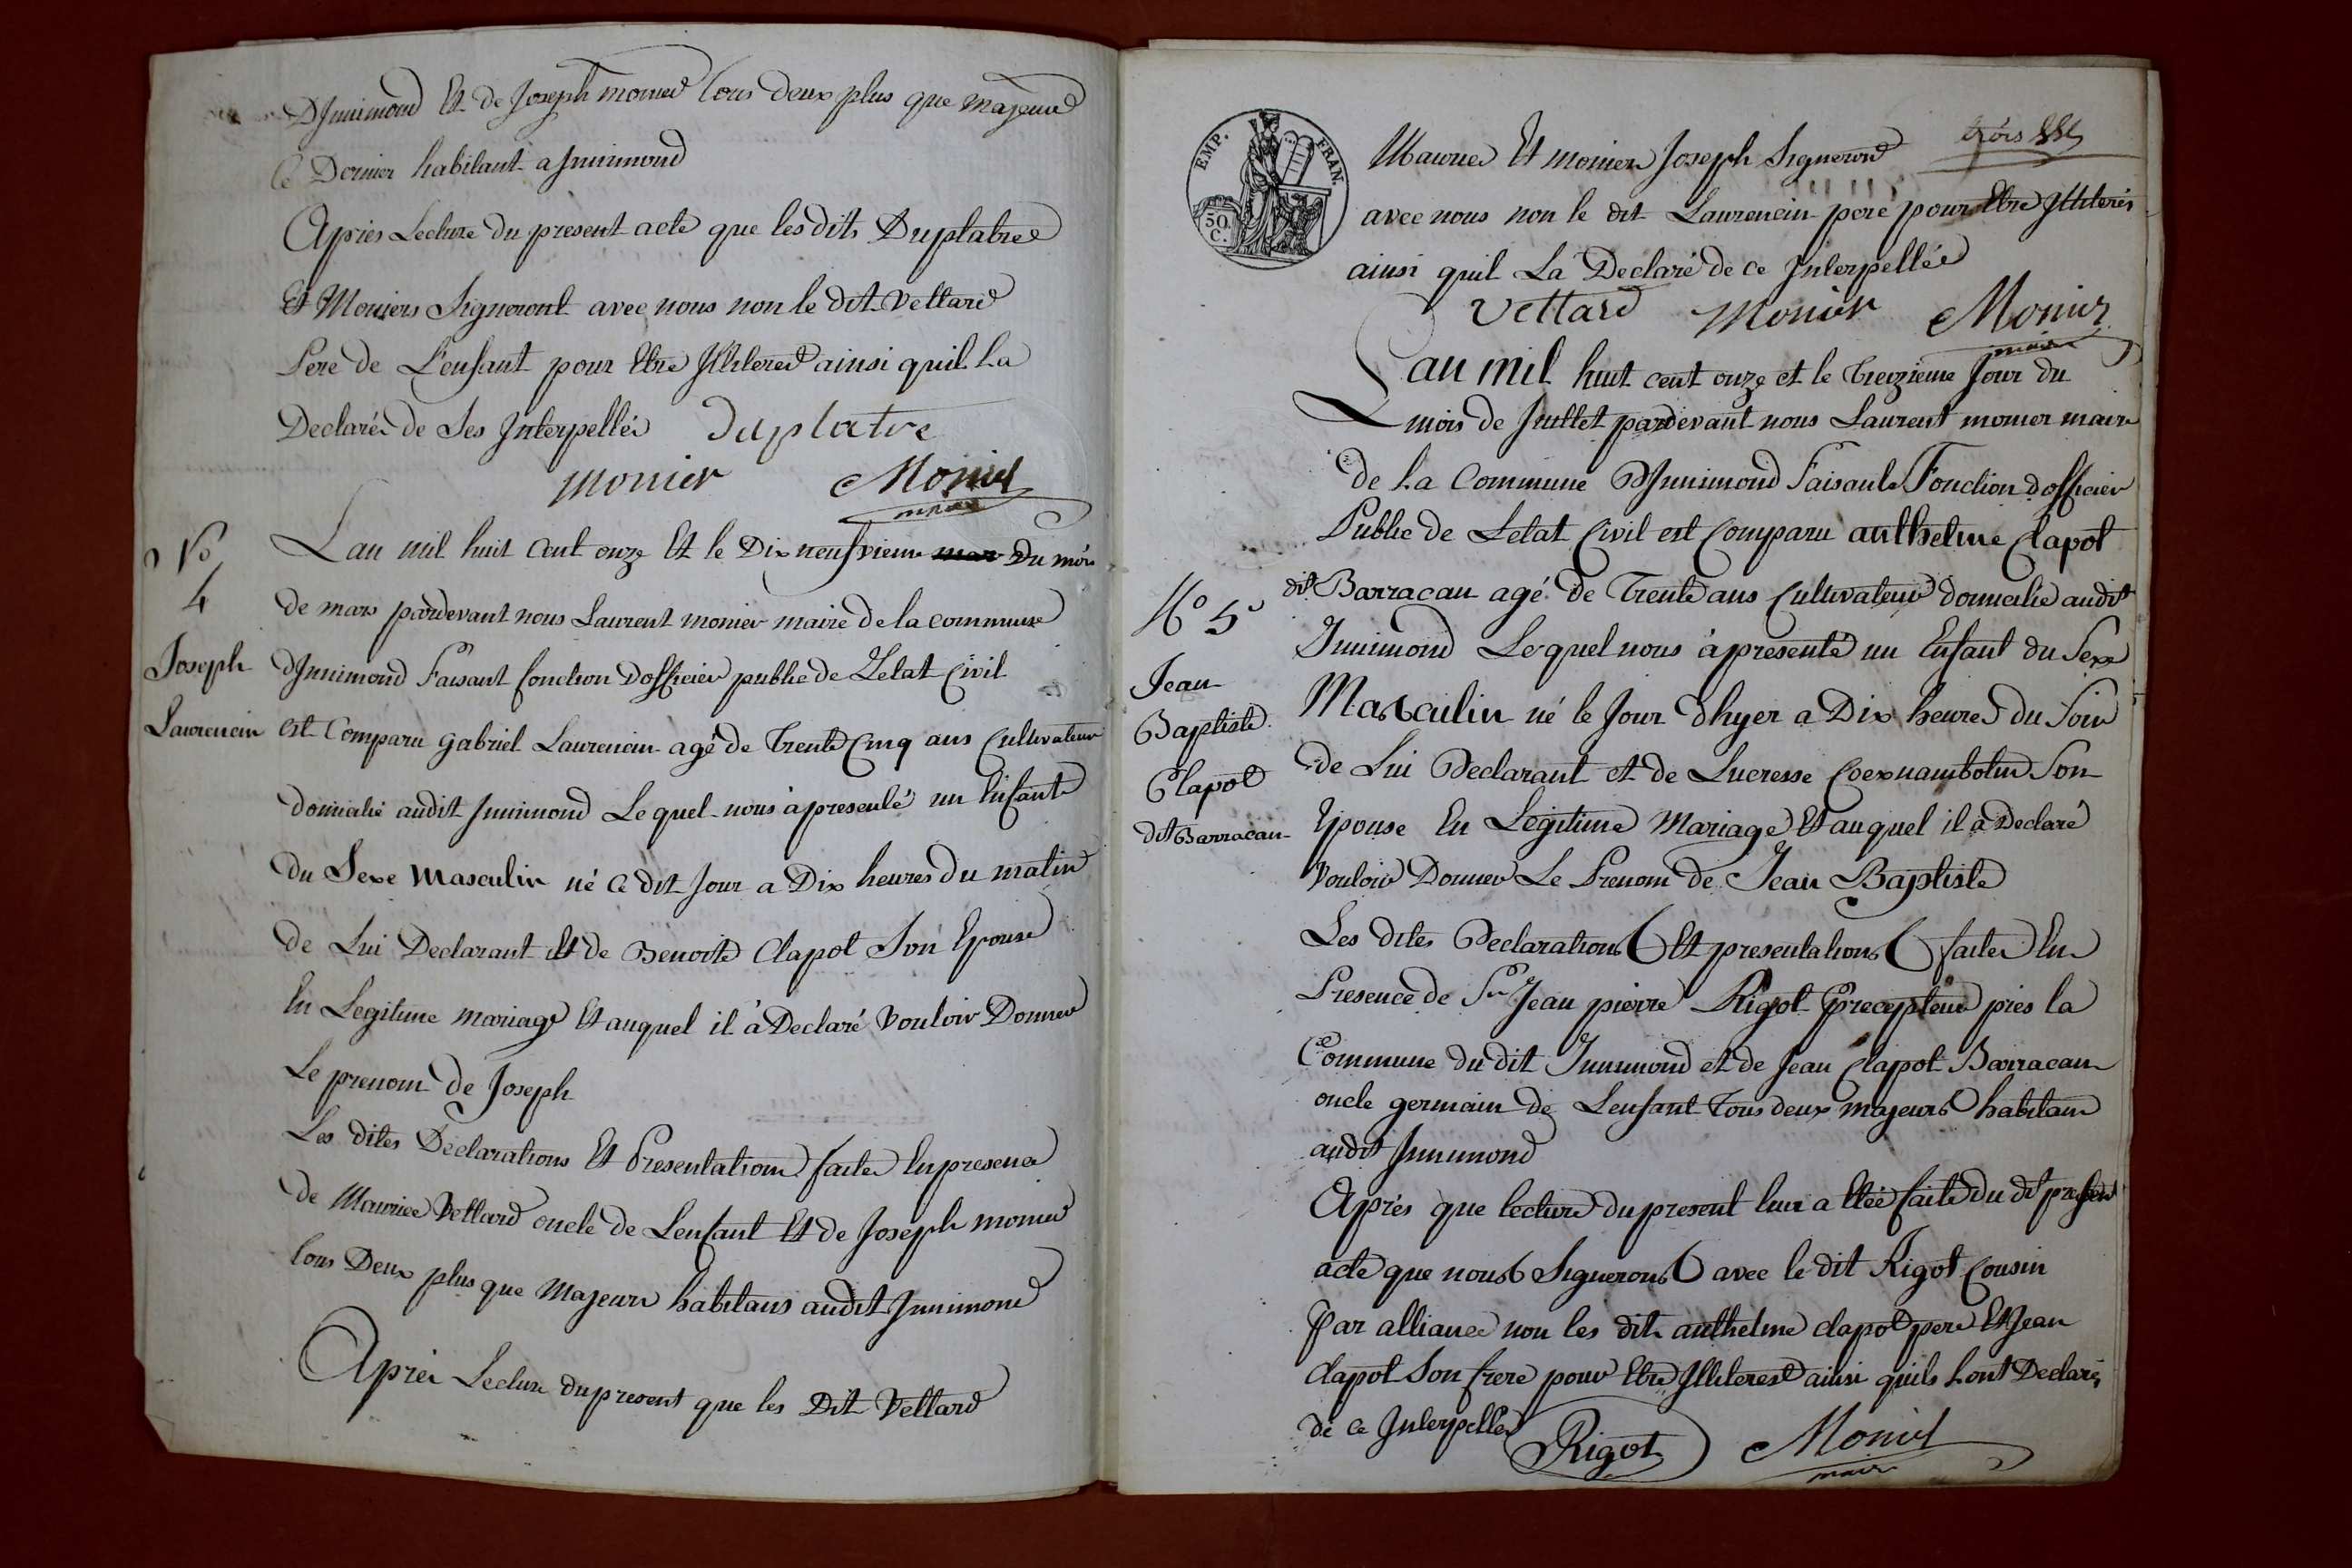 DInnimond Et de Joseph monier tous deux plus que majeurs
Ce Dernier habitant a Jnnimond
Apries Lecture du present acte que les dits Duplatre
Et Moniers Signeront avec nous non le dit Vettard
Pere de L'enfant pour Etre Jllitered ainsi quil La
Declaré de Ses Jnterpellés Duplatre
monier Monier
maire
Lan mil huit Cent onze Et le Dix neufvieme mar Du mois
No
4
de mars pardevant nous Laurent monier maire de la commune
Joseph
Laurencin
dJnnimond Faisant fonction Dofficier public de Letat Civil
est Comparu gabriel Laurencin agé de Trente Cinq ans Cultivateur
domicilié audit Jnnimond Le quel nous à presenté un Enfant
du Sexe Masculin né Ce dit Jour a Dix heures du matin
de Lui Declarant Et de Benoite Clapot Son Epouse
En Legitime mariage Et auquel il à Declaré Vouloir Donner
Le prenom de Joseph
Les dites Declarations Et Presentations faites En presence
de Maurice Vettard oncle de Lenfant Et de Joseph monier
tous Deux plus que Majeurs habitans audit Jnnimond
Apriés Lecture du present que les Dit Vettard
EMP. FRAN.
50 C.
trois
Maurice Et moniers Joseph Signeront
avec nous non le dit Laurencin pere pour Etre Jlliterés
ainsi quil La Declaré de ce Jnterpellée
Vettard Monier Monier
maire
Lan mil huit cent onze et le Treizieme Jour du
mois de Juillet pardevant nous Laurent monier maire
de La Commune DJnnimond Faisants Fonction dofficier
Public de Letat Civil est Comparu anthelme Clapot
No 5
Jean
Baptiste
Clapot
dit Barracan
dit Barracan agé de Trente ans Cultivateur domicilié audit
Jnnimond Lequel nous à presenté un Enfant du Sexe
Masculin né le Jour dhyer a Dix heures du Soir
de Lui Declarant et de Lucresse Coexnambotin Son
Epouse En Legitime Mariage Et auquel il a Declaré
Vouloir Donner Le Prenom de Jean Baptiste
Les dites Declarations Et presentations faites En
Presence de Sr Jean pierre Rigot Precepteur pres la
Commune du dit Jnnimond et de Jean Clapot Barracan
oncle germain de Lenfant Tous deux majeurs habitans
audit Jnnimond
Aprés que lecture du present leur a Etéé faite du dit present
acte que nous Signerons avec le dit Rigot Cousin
Par alliance non les dits anthelme clapot pere Et Jean
Clapot Son frere pour Etre Jlliterest ainsi quils Lont Declarés
de Ce Jnterpellés Rigot Monier
maire